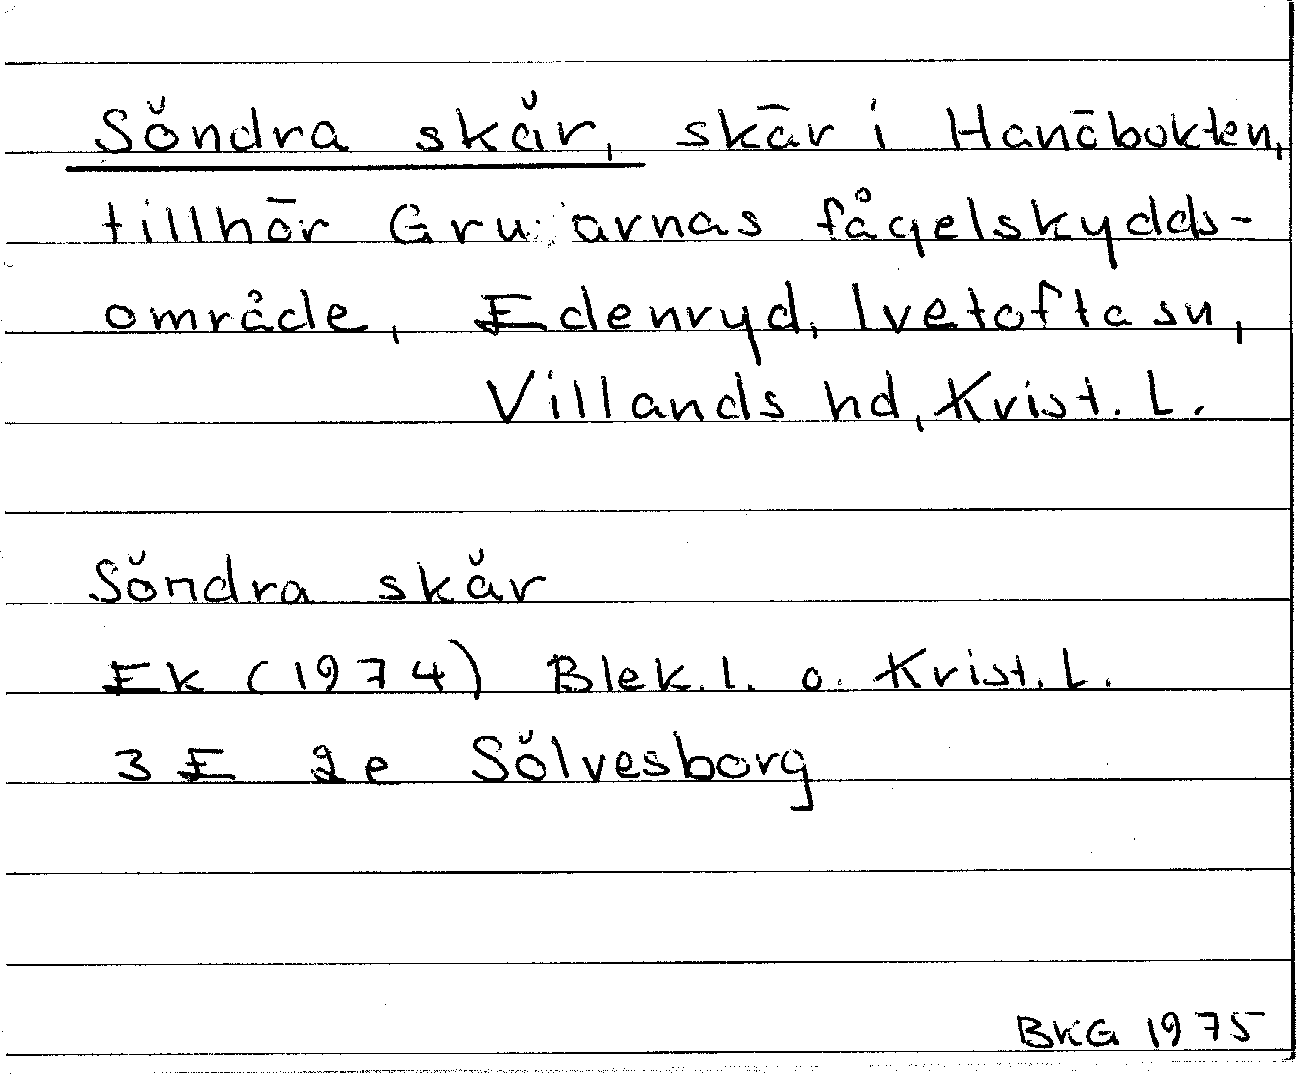 Söndra skär, skär i Hanöbukten,
tillhör Gruarnas fågelskydds-
område, Edenryd, Ivetofta sn,
Villands hd, Krist. L.
Söndra skär
Ek (1974) Blek. l. o. Krist. L.
3 E 2e Sölvesborg
BKG 1975